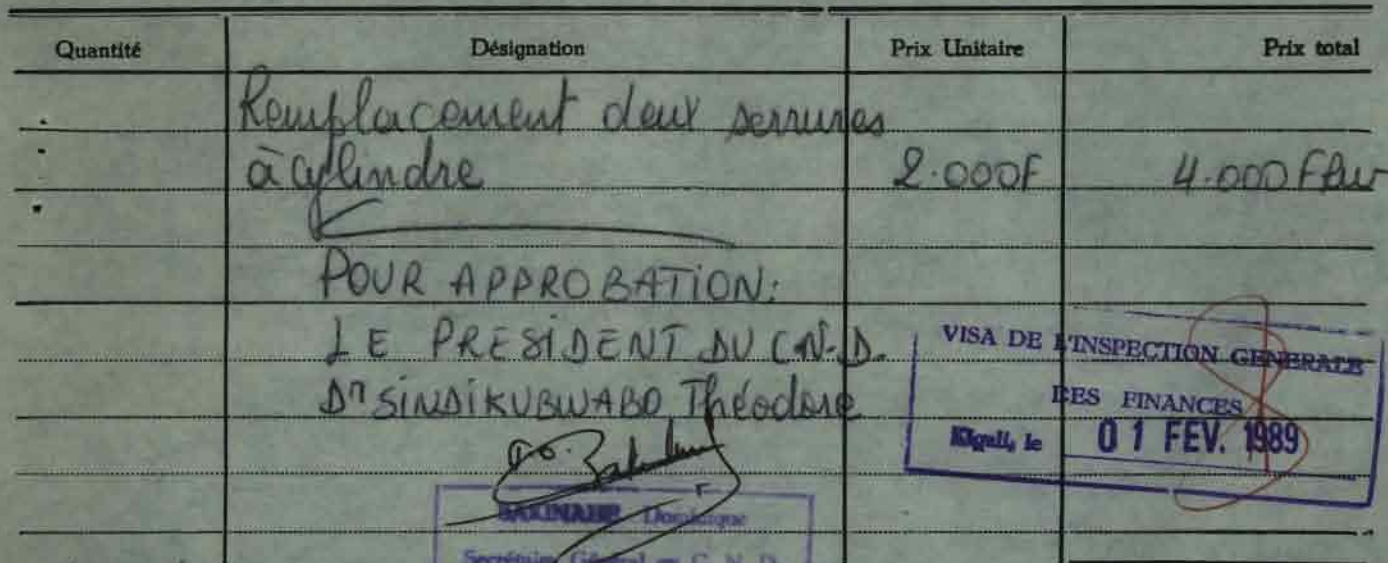 Quantité Désignation Prix Unitaire Prix total
Remplacement deux serrures
à cylindre 2.000F 4.000 FRw
POUR APPROBATION:
LE PRESIDENT DU C.N.D.
Dr SINDIKUBWABO Théodore
VISA DE L'INSPECTION GENERALE
DES FINANCES
Kigali, le 01 FEV. 1989
Dominique
Secrétaire Général C. N. D.